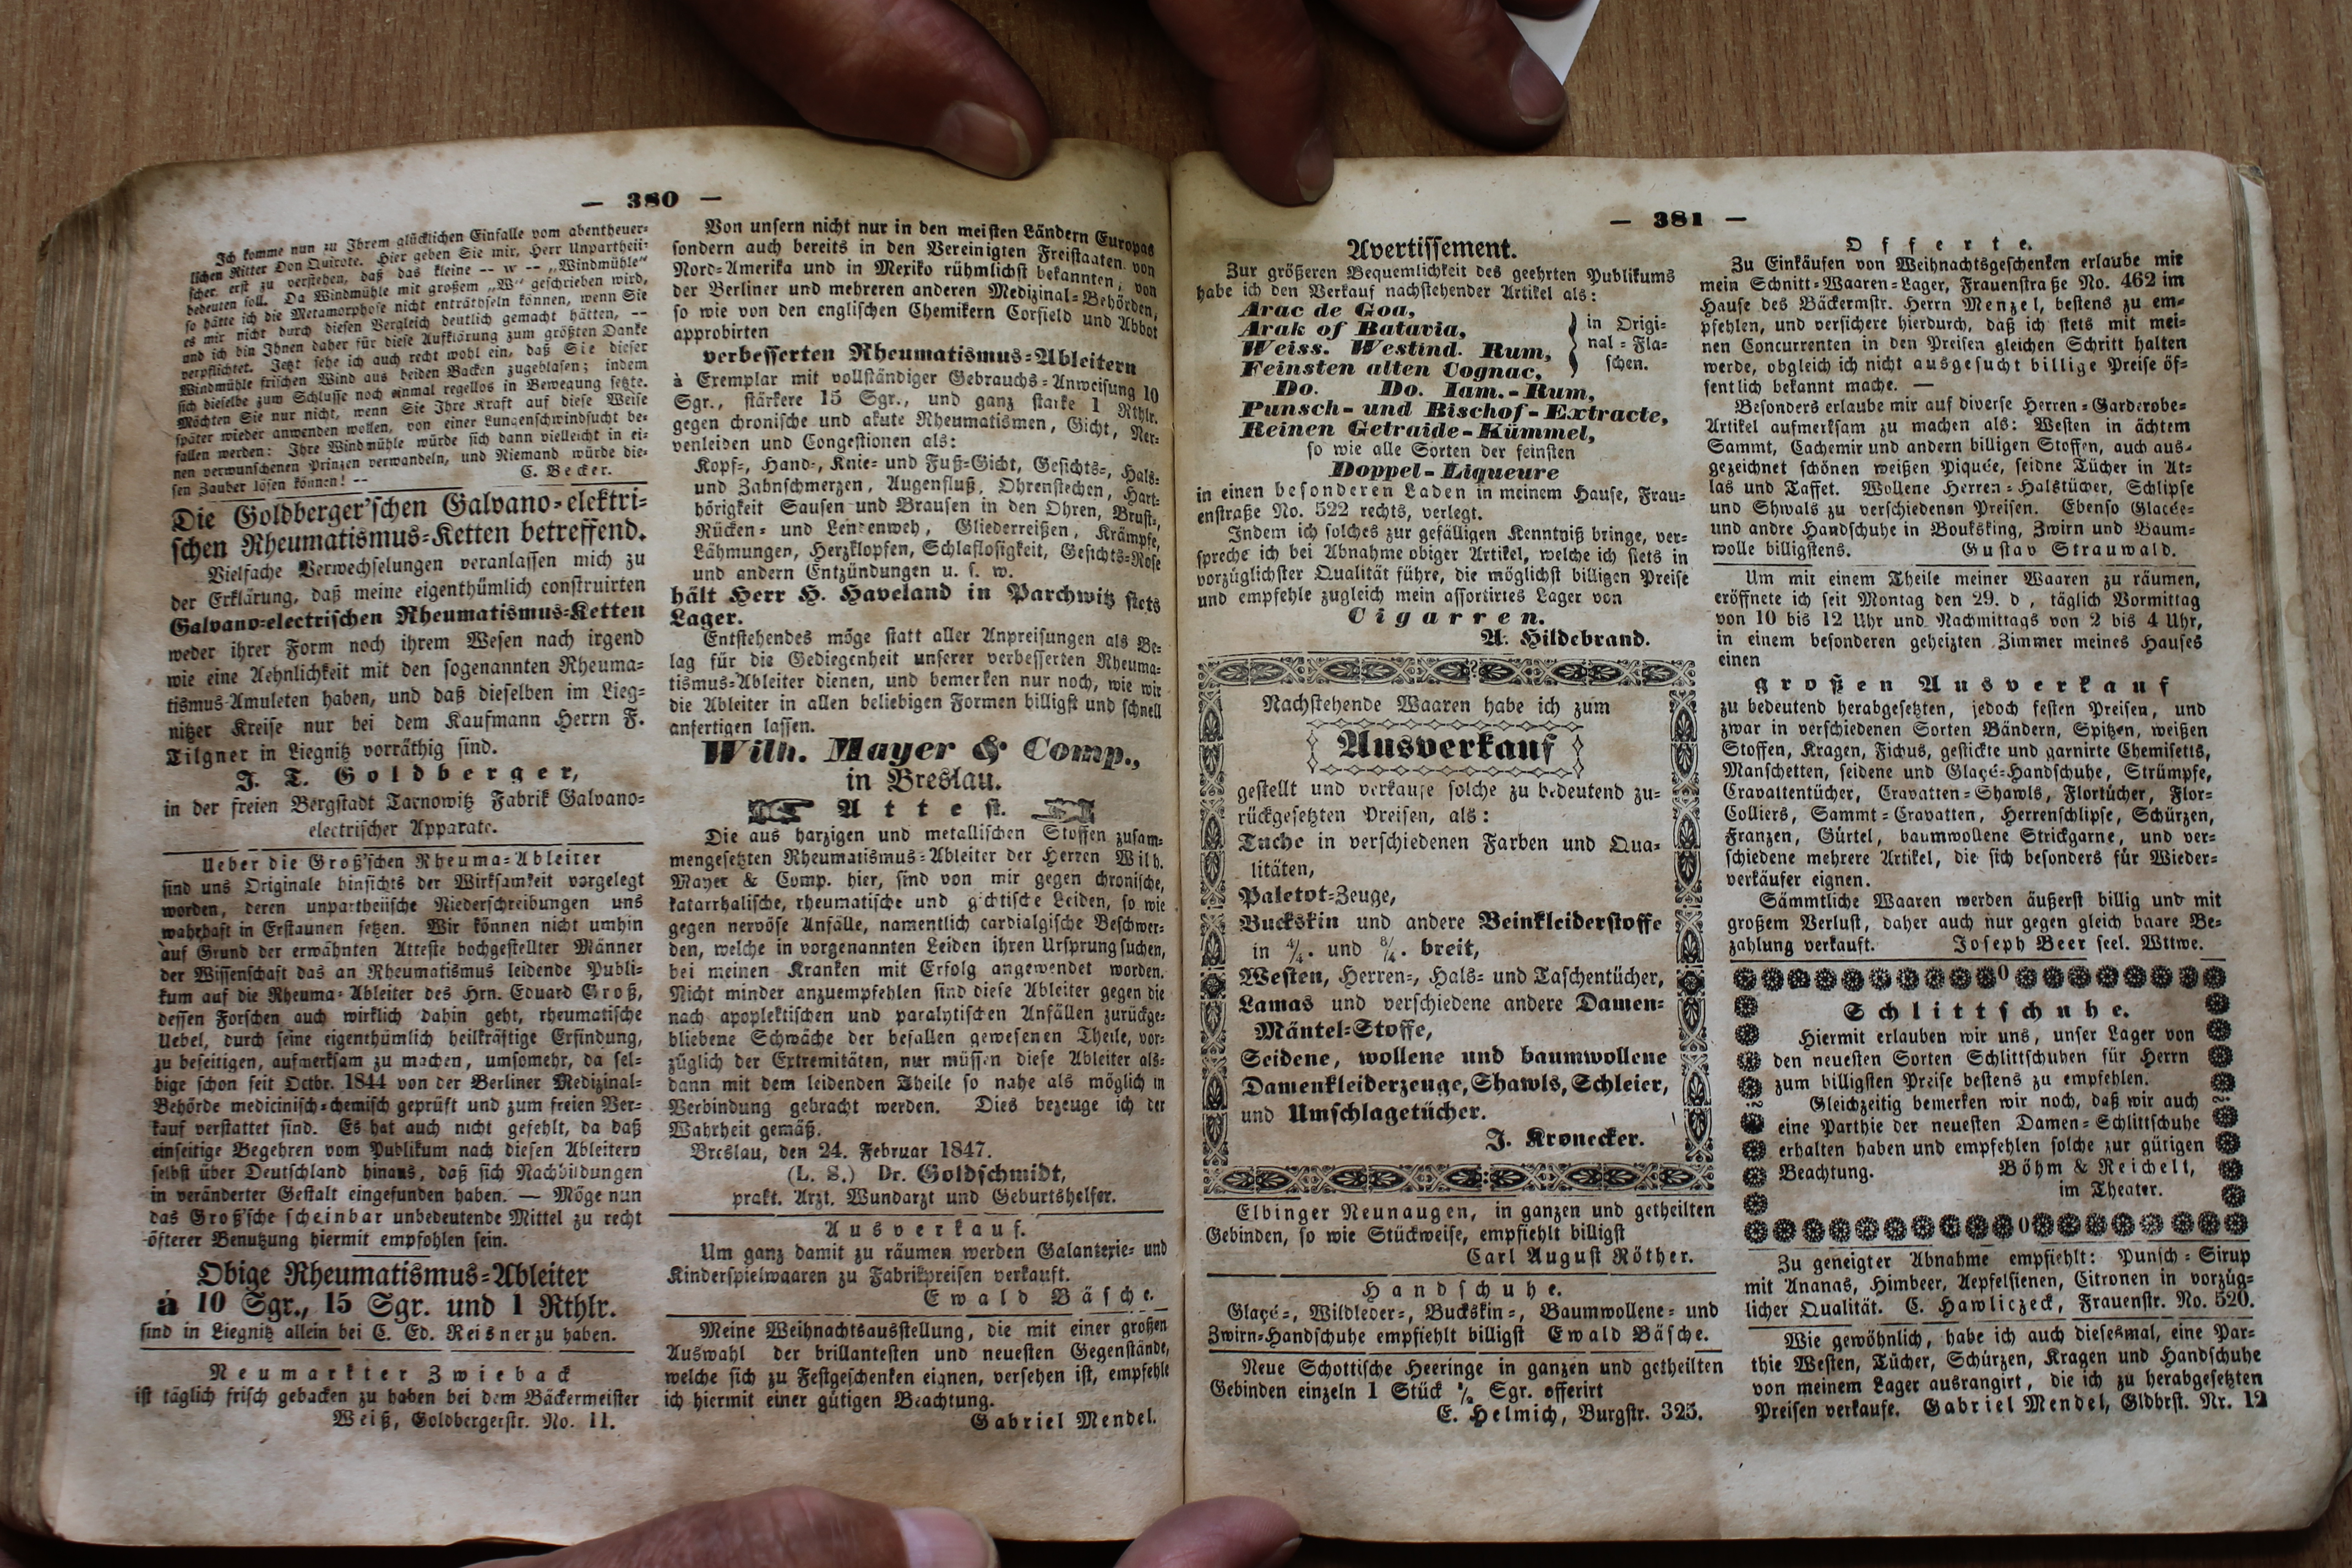 — 380 —
Ich komme nun zu Ihrem glücklichen Einfalle vom abentheuer-
lichen Ritter Don Quixote. Hier geben Sie mir, Herr Unpartheii-
scher erst zu verstehen, daß das kleine -- w -- „Windmühle“
bedeuten soll. Da Windmühle mit großem „W“ geschrieben wird,
so hätte ich die Metamorphose nicht enträthseln können, wenn Sie
es mir nicht durch diesen Vergleich deutlich gemacht hätten, --
und ich bin Ihnen daher für diese Aufklärung zum größten Danke
verpflichtet. Jetzt sehe ich auch recht wohl ein, daß Sie dieser
Windmühle frischen Wind aus beiden Backen zugeblasen; indem
sich dieselbe zum Schlusse noch einmal regellos in Bewegung setzte.
Möchten Sie nur nicht, wenn Sie Ihre Kraft auf diese Weise
später wieder anwenden wollen, von einer Lungenschwindsucht be-
fallen werden: Ihre Windmühle würde sich dann vielleicht in ei-
nen verwunschenen Prinzen verwandeln, und Niemand würde die-
sen Zauber lösen können! --
C. Becker.
Die Goldberger'schen Galvano-elektri-
schen Rheumatismus-Ketten betreffend.
Vielfache Verwechselungen veranlassen mich zu
der Erklärung, daß meine eigenthümlich construirten
Galvano-electrischen Rheumatismus-Ketten
weder ihrer Form noch ihrem Wesen nach irgend
wie eine Aehnlichkeit mit den sogenannten Rheuma-
tismus-Amuleten haben, und daß dieselben im Lieg-
nitzer Kreise nur bei dem Kaufmann Herrn F.
Tilgner in Liegnitz vorräthig sind.
J. T. Goldberger,
in der freien Bergstadt Tarnowitz Fabrik Galvano-
electrischer Apparate.
Ueber die Groß'schen Rheuma-Ableiter
sind uns Originale hinsichts der Wirksamkeit vorgelegt
worden, deren unpartheiische Niederschreibungen uns
wahrhaft in Erstaunen setzen. Wir können nicht umhin
auf Grund der erwähnten Atteste hochgestellter Männer
der Wissenschaft das an Rheumatismus leidende Publi-
kum auf die Rheuma-Ableiter des Hrn. Eduard Groß,
dessen Forschen auch wirklich dahin geht, rheumatische
Uebel, durch seine eigenthümlich heilkräftige Erfindung,
zu beseitigen, aufmerksam zu machen, umsomehr, da sel-
bige schon seit Octbr. 1844 von der Berliner Medizinal-
Behörde medicinisch-chemisch geprüft und zum freien Ver-
kauf verstattet sind. Es hat auch nicht gefehlt, da daß
einseitige Begehren vom Publikum nach diesen Ableitern
selbst über Deutschland hinaus, daß sich Nachbildungen
in veränderter Gestalt eingefunden haben. — Möge nun
das Groß'sche scheinbar unbedeutende Mittel zu recht
öfterer Benutzung hiermit empfohlen sein.
Obige Rheumatismus-Ableiter
à 10 Sgr., 15 Sgr. und 1 Rthlr.
sind in Liegnitz allein bei C. Ed. Reisner zu haben.
Neumarkter Zwieback
ist täglich frisch gebacken zu haben bei dem Bäckermeister
Weiß, Goldbergerstr. No. 11.
Von unsern nicht nur in den meisten Ländern Europas
sondern auch bereits in den Vereinigten Freistaaten von
Nord-Amerika und in Mexiko rühmlichst bekannten, von
der Berliner und mehreren anderen Medizinal-Behörden,
so wie von den englischen Chemikern Corfield und Abbot
approbirten
verbesserten Rheumatismus-Ableitern
à Exemplar mit vollständiger Gebrauchs-Anweisung 10
Sgr., stärkere 15 Sgr., und ganz starke 1 Rthlr.
gegen chronische und akute Rheumatismen, Gicht, Ner-
venleiden und Congestionen als:
Kopf-, Hand-, Knie- und Fuß-Gicht, Gesichts-, Hals-
und Zahnschmerzen, Augenfluß, Ohrenstechen, Hart-
hörigkeit Sausen und Brausen in den Ohren, Brust-,
Rücken- und Lendenweh, Gliederreißen, Krämpfe,
Lähmungen, Herzklopfen, Schlaflosigkeit, Gesichts-Rose
und andern Entzündungen u. s. w.
hält Herr H. Haveland in Parchwitz stets
Lager.
Entstehendes möge statt aller Anpreisungen als Be-
lag für die Gediegenheit unserer verbesserten Rheuma-
tismus-Ableiter dienen, und bemerken nur noch, wie wir
die Ableiter in allen beliebigen Formen billigst und schnell
anfertigen lassen.
Wilh. Mayer & Comp.,
in Breslau.
Attest.
Die aus harzigen und metallischen Stoffen zusam-
mengesetzten Rheumatismus-Ableiter der Herren Wilh.
Mayer & Comp. hier, sind von mir gegen chronische,
katarrhalische, rheumatische und gichtische Leiden, so wie
gegen nervöse Anfälle, namentlich cardialgische Beschwer-
den, welche in vorgenannten Leiden ihren Ursprung suchen,
bei meinen Kranken mit Erfolg angewendet worden.
Nicht minder anzuempfehlen sind diese Ableiter gegen die
nach apoplektischen und paralytischen Anfällen zurückge-
bliebene Schwäche der befallen gewesenen Theile, vor-
züglich der Extremitäten, nur müssen diese Ableiter als-
dann mit dem leidenden Theile so nahe als möglich in
Verbindung gebracht werden. Dies bezeuge ich der
Wahrheit gemäß.
Breslau, den 24. Februar 1847.
(L. S.) Dr. Goldschmidt,
prakt. Arzt. Wundarzt und Geburtshelfer.
Ausverkauf.
Um ganz damit zu räumen werden Galanterie- und
Kinderspielwaaren zu Fabrikpreisen verkauft.
Ewald Bäsche.
Meine Weihnachtsausstellung, die mit einer großen
Auswahl der brillantesten und neuesten Gegenstände,
welche sich zu Festgeschenken eignen, versehen ist, empfehle
ich hiermit einer gütigen Beachtung.
Gabriel Mendel.
— 381 —
Avertissement.
Zur größeren Bequemlichkeit des geehrten Publikums
habe ich den Verkauf nachstehender Artikel als:
Arac de Goa,
Arak of Batavia,
Weiss. Westind. Rum,
Feinsten alten Cognac,
in Origi-
nal-Fla-
schen.
Do. Do. Iam.-Rum,
Punsch- und Bischof-Extracte,
Reinen Getraide-Kümmel,
so wie alle Sorten der feinsten
Doppel-Liqueure
in einen besonderen Laden in meinem Hause, Frau-
enstraße No. 522 rechts, verlegt.
Indem ich solches zur gefälligen Kenntniß bringe, ver-
spreche ich bei Abnahme obiger Artikel, welche ich stets in
vorzüglichster Qualität führe, die möglichst billigen Preise
und empfehle zugleich mein assortirtes Lager von
Cigarren.
A. Hildebrand.
Nachstehende Waaren habe ich zum
Ausverkauf
gestellt und verkaufe solche zu bedeutend zu-
rückgesetzten Preisen, als:
Tuche in verschiedenen Farben und Qua-
litäten,
Paletot-Zeuge,
Buckskin und andere Beinkleiderstoffe
in 4/4. und 8/4. breit,
Westen, Herren-, Hals- und Taschentücher,
Lamas und verschiedene andere Damen-
Mäntel-Stoffe,
Seidene, wollene und baumwollene
Damenkleiderzeuge, Shawls, Schleier,
und Umschlagetücher.
J. Kronecker.
Elbinger Neunaugen, in ganzen und getheilten
Gebinden, so wie Stückweise, empfiehlt billigst
Carl August Röther.
Handschuhe.
Glaçé-, Wildleder-, Buckskin-, Baumwollene- und
Zwirn-Handschuhe empfiehlt billigst Ewald Bäsche.
Neue Schottische Heeringe in ganzen und getheilten
Gebinden einzeln 1 Stück Sgr. offerirt
E. Helmich, Burgstr. 325.
Offerte.
Zu Einkäufen von Weihnachtsgeschenken erlaube mir
mein Schnitt-Waaren-Lager, Frauenstraße No. 462 im
Hause des Bäckermstr. Herrn Menzel, bestens zu em-
pfehlen, und versichere hierdurch, daß ich stets mit mei-
nen Concurrenten in den Preisen gleichen Schritt halten
werde, obgleich ich nicht ausgesucht billige Preise öf-
fentlich bekannt mache. —
Besonders erlaube mir auf diverse Herren-Garderobe-
Artikel aufmerksam zu machen als: Westen in ächtem
Sammt, Cachemir und andern billigen Stoffen, auch aus-
gezeichnet schönen weißen Piquée, seidne Tücher in At-
las und Taffet. Wollene Herren-Halstücher, Schlipse
und Shwals zu verschiedenen Preisen. Ebenso Glacée-
und andre Handschuhe in Bouksking, Zwirn und Baum-
wolle billigstens. Gustav Strauwald.
Um mit einem Theile meiner Waaren zu räumen,
eröffnete ich seit Montag den 29. d, täglich Vormittag
von 10 bis 12 Uhr und Nachmittags von 2 bis 4 Uhr,
in einem besonderen geheizten Zimmer meines Hauses
einen
großen Ausverkauf
zu bedeutend herabgesetzten, jedoch festen Preisen, und
zwar in verschiedenen Sorten Bändern, Spitzen, weißen
Stoffen, Kragen, Fichus, gestickte und garnirte Chemisetts,
Manschetten, seidene und Glaçé-Handschuhe, Strümpfe,
Cravattentücher, Cravatten-Shawls, Flortücher, Flor-
Colliers, Sammt-Cravatten, Herrenschlipse, Schürzen,
Franzen, Gürtel, baumwollene Strickgarne, und ver-
schiedene mehrere Artikel, die sich besonders für Wieder-
verkäufer eignen.
Sämmtliche Waaren werden äußerst billig und mit
großem Verlust, daher auch nur gegen gleich baare Be-
zahlung verkauft. Joseph Beer seel. Wttwe.
Schlittschuhe.
Hiermit erlauben wir uns, unser Lager von
den neuesten Sorten Schlittschuhen für Herrn
zum billigsten Preise bestens zu empfehlen.
Gleichzeitig bemerken wir noch, daß wir auch
eine Parthie der neuesten Damen-Schlittschuhe
erhalten haben und empfehlen solche zur gütigen
Beachtung. Böhm & Reichelt,
im Theater.
Zu geneigter Abnahme empfiehlt: Punsch-Sirup
mit Ananas, Himbeer, Aepfelsienen, Citronen in vorzüg-
licher Qualität. C. Hawliczeck, Frauenstr. No. 520.
Wie gewöhnlich, habe ich auch diesesmal, eine Par-
thie Westen, Tücher, Schürzen, Kragen und Handschuhe
von meinem Lager ausrangirt, die ich zu herabgesetzten
Preisen verkaufe. Gabriel Mendel, Gldbrst. Nr. 12